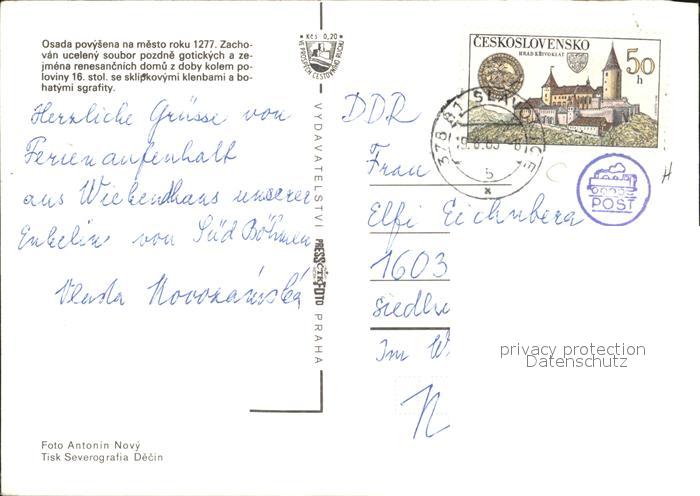 Osada povýšena na město roku 1277. Zacho-
ván ucelený soubor pozdně gotických a ze-
jména renesančních domů z doby kolem po-
loviny 16. stol. se sklípkovými klenbami a bo-
hatými sgrafity.
Herzliche Grüsse von
Ferienaufenhalt
aus Wiekendhaus unserer
Enkelin von Süd Böhmen
Vlasta
Foto Antonín Nový
Tisk Severografia Děčín
Kčs 0,20
VE PROSPĚCH CESTOVNÍHO RUCHU
VYDAVATELSTVÍ PRESSFOTO PRAHA
ČESKOSLOVENSKO
HRAD KŘIVOKLÁT
50 h
378 81 SLAVONICE
b
POST
DDR
Frau
Elfi Eichnberg
1603
Im W
privacy protection
Datenschutz